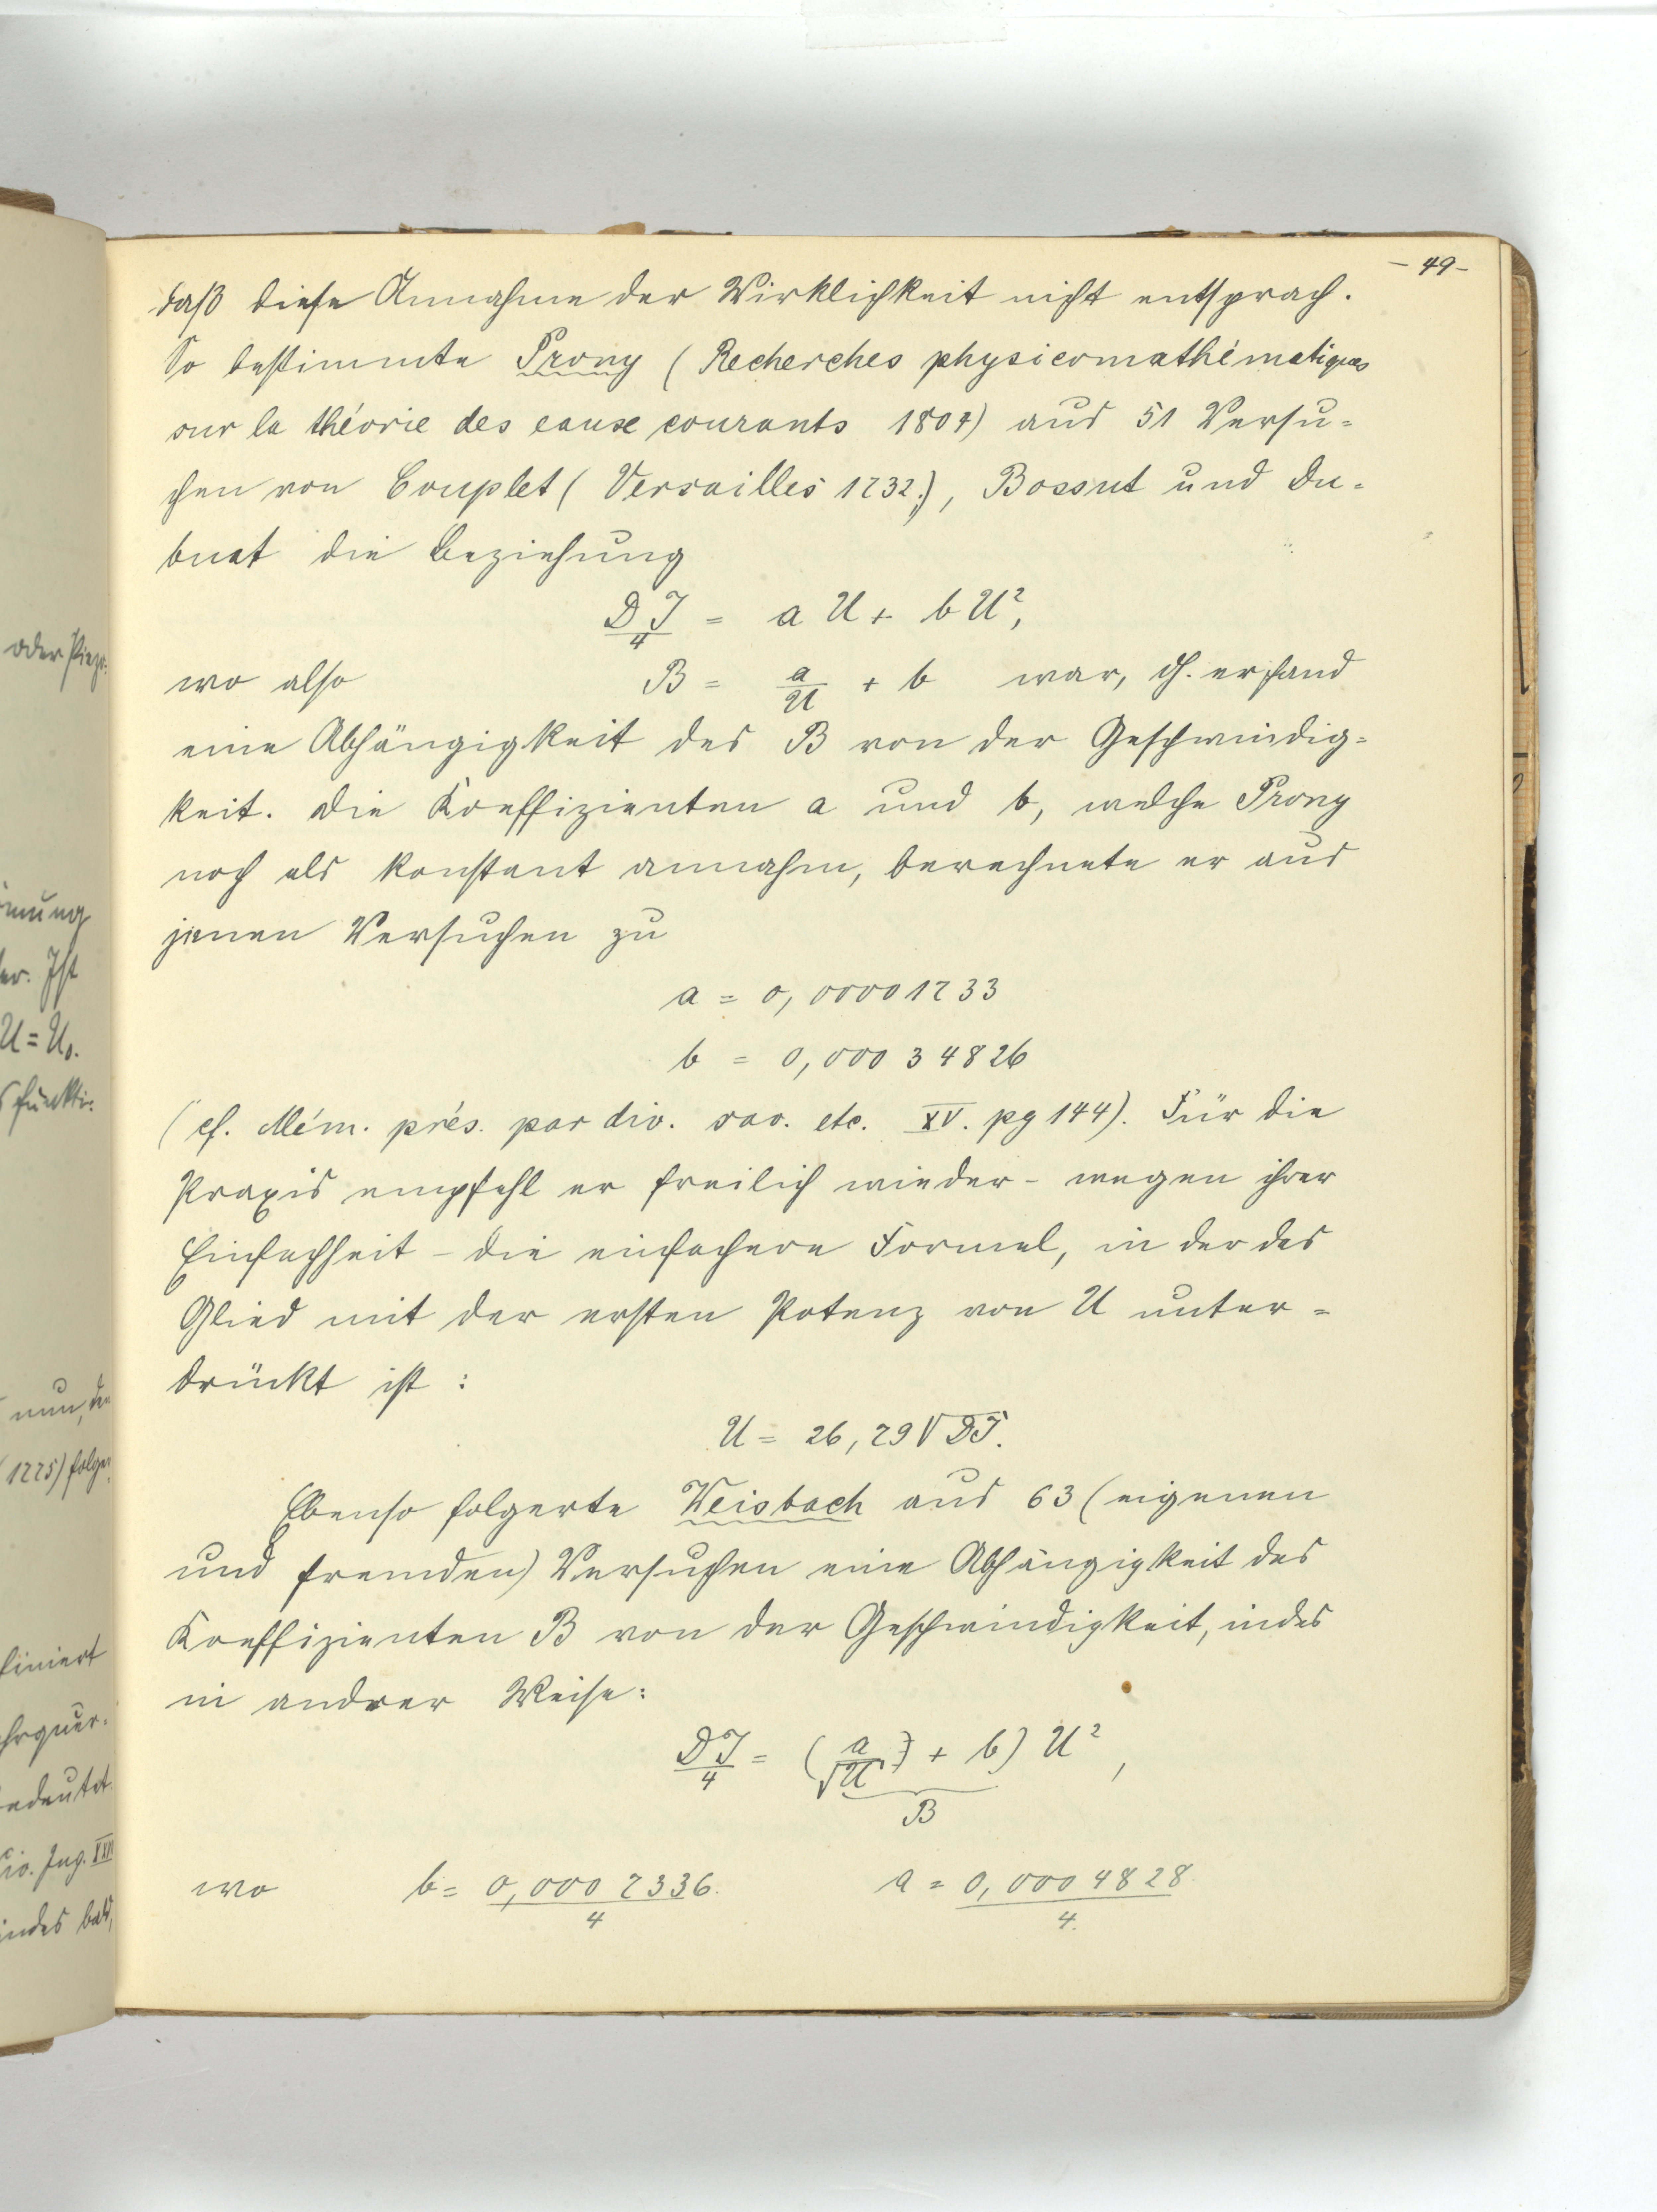 - 49 -
daß diese Annahme der Wirklichkeit nicht entsprach.
So bestimmte Prony (Recherches physicomathématiques
sur la théorie des eaux courants 1804) aus 51 Versu=
chen von Couplet (Versailles 1732), Bossut und Du=
buat die Beziehung
DJ/4 = a U + b U²,
wo also B = a/U + b war, d.h. er fand
eine Abhängigkeit des B von der Geschwindig=
keit. Die Koeffizienten a und b, welche Prony
noch als konstant annahm, berechnete er aus
jenen Versuchen zu
a = 0,00001733
b = 0,00034826
(cf. Mém. prés. par div. sav. etc. XV. pg 144). Für die
Praxis empfahl er freilich wieder - wegen ihrer
Einfachheit - die einfachere Formel, in der das
Glied mit der ersten Potenz von U unter=
drückt ist:
U = 26,79 √DJ.
Ebenso folgerte Weisbach aus 63 (eigenen
und fremden) Versuchen eine Abhängigkeit des
Koeffizienten B von der Geschwindigkeit, indes
in andrer Weise:
DJ/4 = (a/√U + b) U²,
B
wo b = 0,0007336/4 a = 0,0004828/4
oder Piezo:
U = U₀.
funkti:
nun, der
(1775) folge
finiert
hrquer=
bedeutet
Ing. XXII
indes bald,